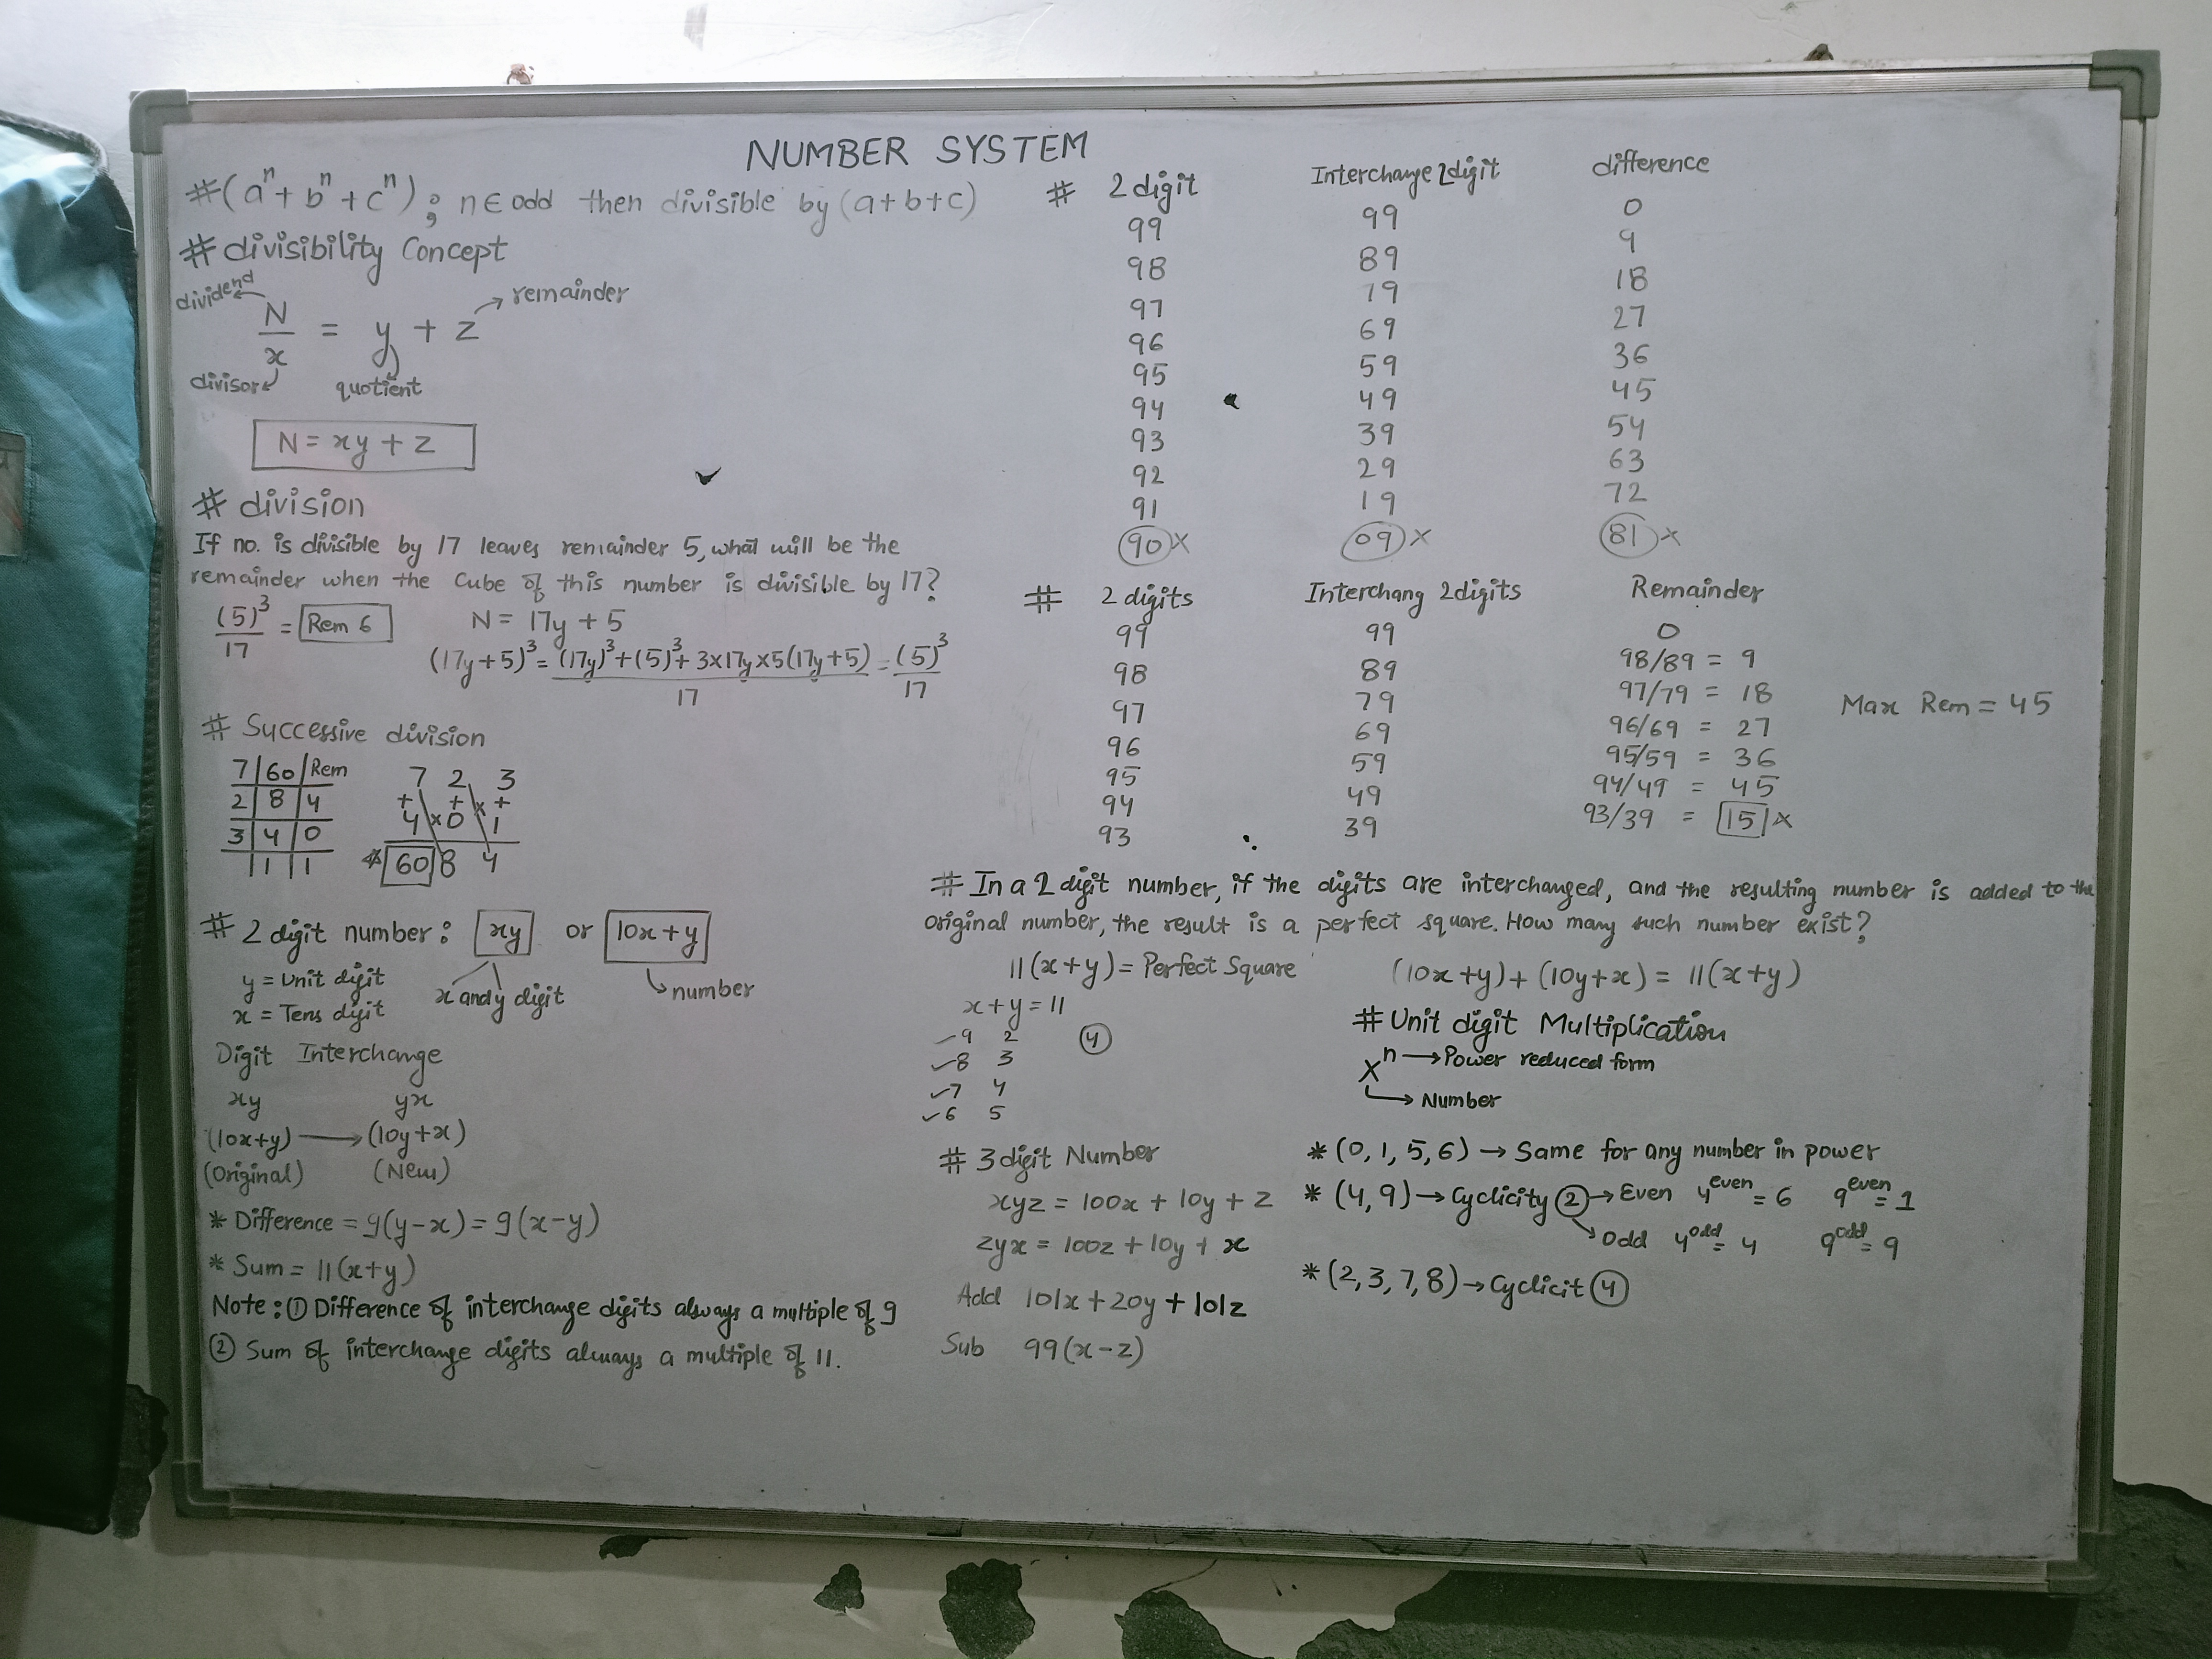 NUMBER SYSTEM
# (aⁿ + bⁿ + cⁿ) ; n ∈ odd then divisible by (a+b+c)
# divisibility Concept
dividend
N/x = y + z
remainder
divisor
quotient
N = xy + z
# division
If no. is divisible by 17 leaves remainder 5, what will be the
remainder when the Cube of this number is divisible by 17?
(5)³/17 = Rem 6
N = 17y + 5
(17y+5)³ = (17y)³+(5)³+3×17y×5(17y+5)/17 = (5)³/17
# Successive division
7 | 60 | Rem
2 | 8 | 4
3 | 4 | 0
1 | 1
7 2 3
+ + × +
4 × 0 1
* 60 8 4
# 2 digit number : xy or 10x+y
y = Unit digit
x = Tens digit
x and y digit
number
Digit Interchange
xy yx
(10x+y) → (10y+x)
(Original) (New)
* Difference = 9(y-x) = 9(x-y)
* Sum = 11(x+y)
Note : ① Difference of interchange digits always a multiple of 9
② Sum of interchange digits always a multiple of 11.
# 2 digit Interchange 2digit difference
99 99 0
98 89 9
97 79 18
96 69 27
95 59 36
94 49 45
93 39 54
92 29 63
91 19 72
90 × 09 × 81 ×
# 2 digits Interchang 2digits Remainder
99 99 0
98 89 98/89 = 9
97 79 97/79 = 18
96 69 96/69 = 27
95 59 95/59 = 36
94 49 94/49 = 45
93 39 93/39 = 15 ×
Max Rem = 45
# In a 2 digit number, if the digits are interchanged, and the resulting number is added to the
original number, the result is a perfect square. How many such number exist?
11(x+y) = Perfect Square (10x+y) + (10y+x) = 11(x+y)
x+y = 11
✓9 2 ④
✓8 3
✓7 4
✓6 5
# 3 digit Number
xyz = 100x + 10y + z
zyx = 100z + 10y + x
Add 101x + 20y + 101z
Sub 99(x-z)
# Unit digit Multiplication
Xⁿ → Power reduced form
→ Number
* (0, 1, 5, 6) → Same for any number in power
* (4, 9) → Cyclicity ② → Even 4^even = 6 9^even = 1
Odd 4^odd = 4 9^odd = 9
* (2, 3, 7, 8) → Cyclicit ④